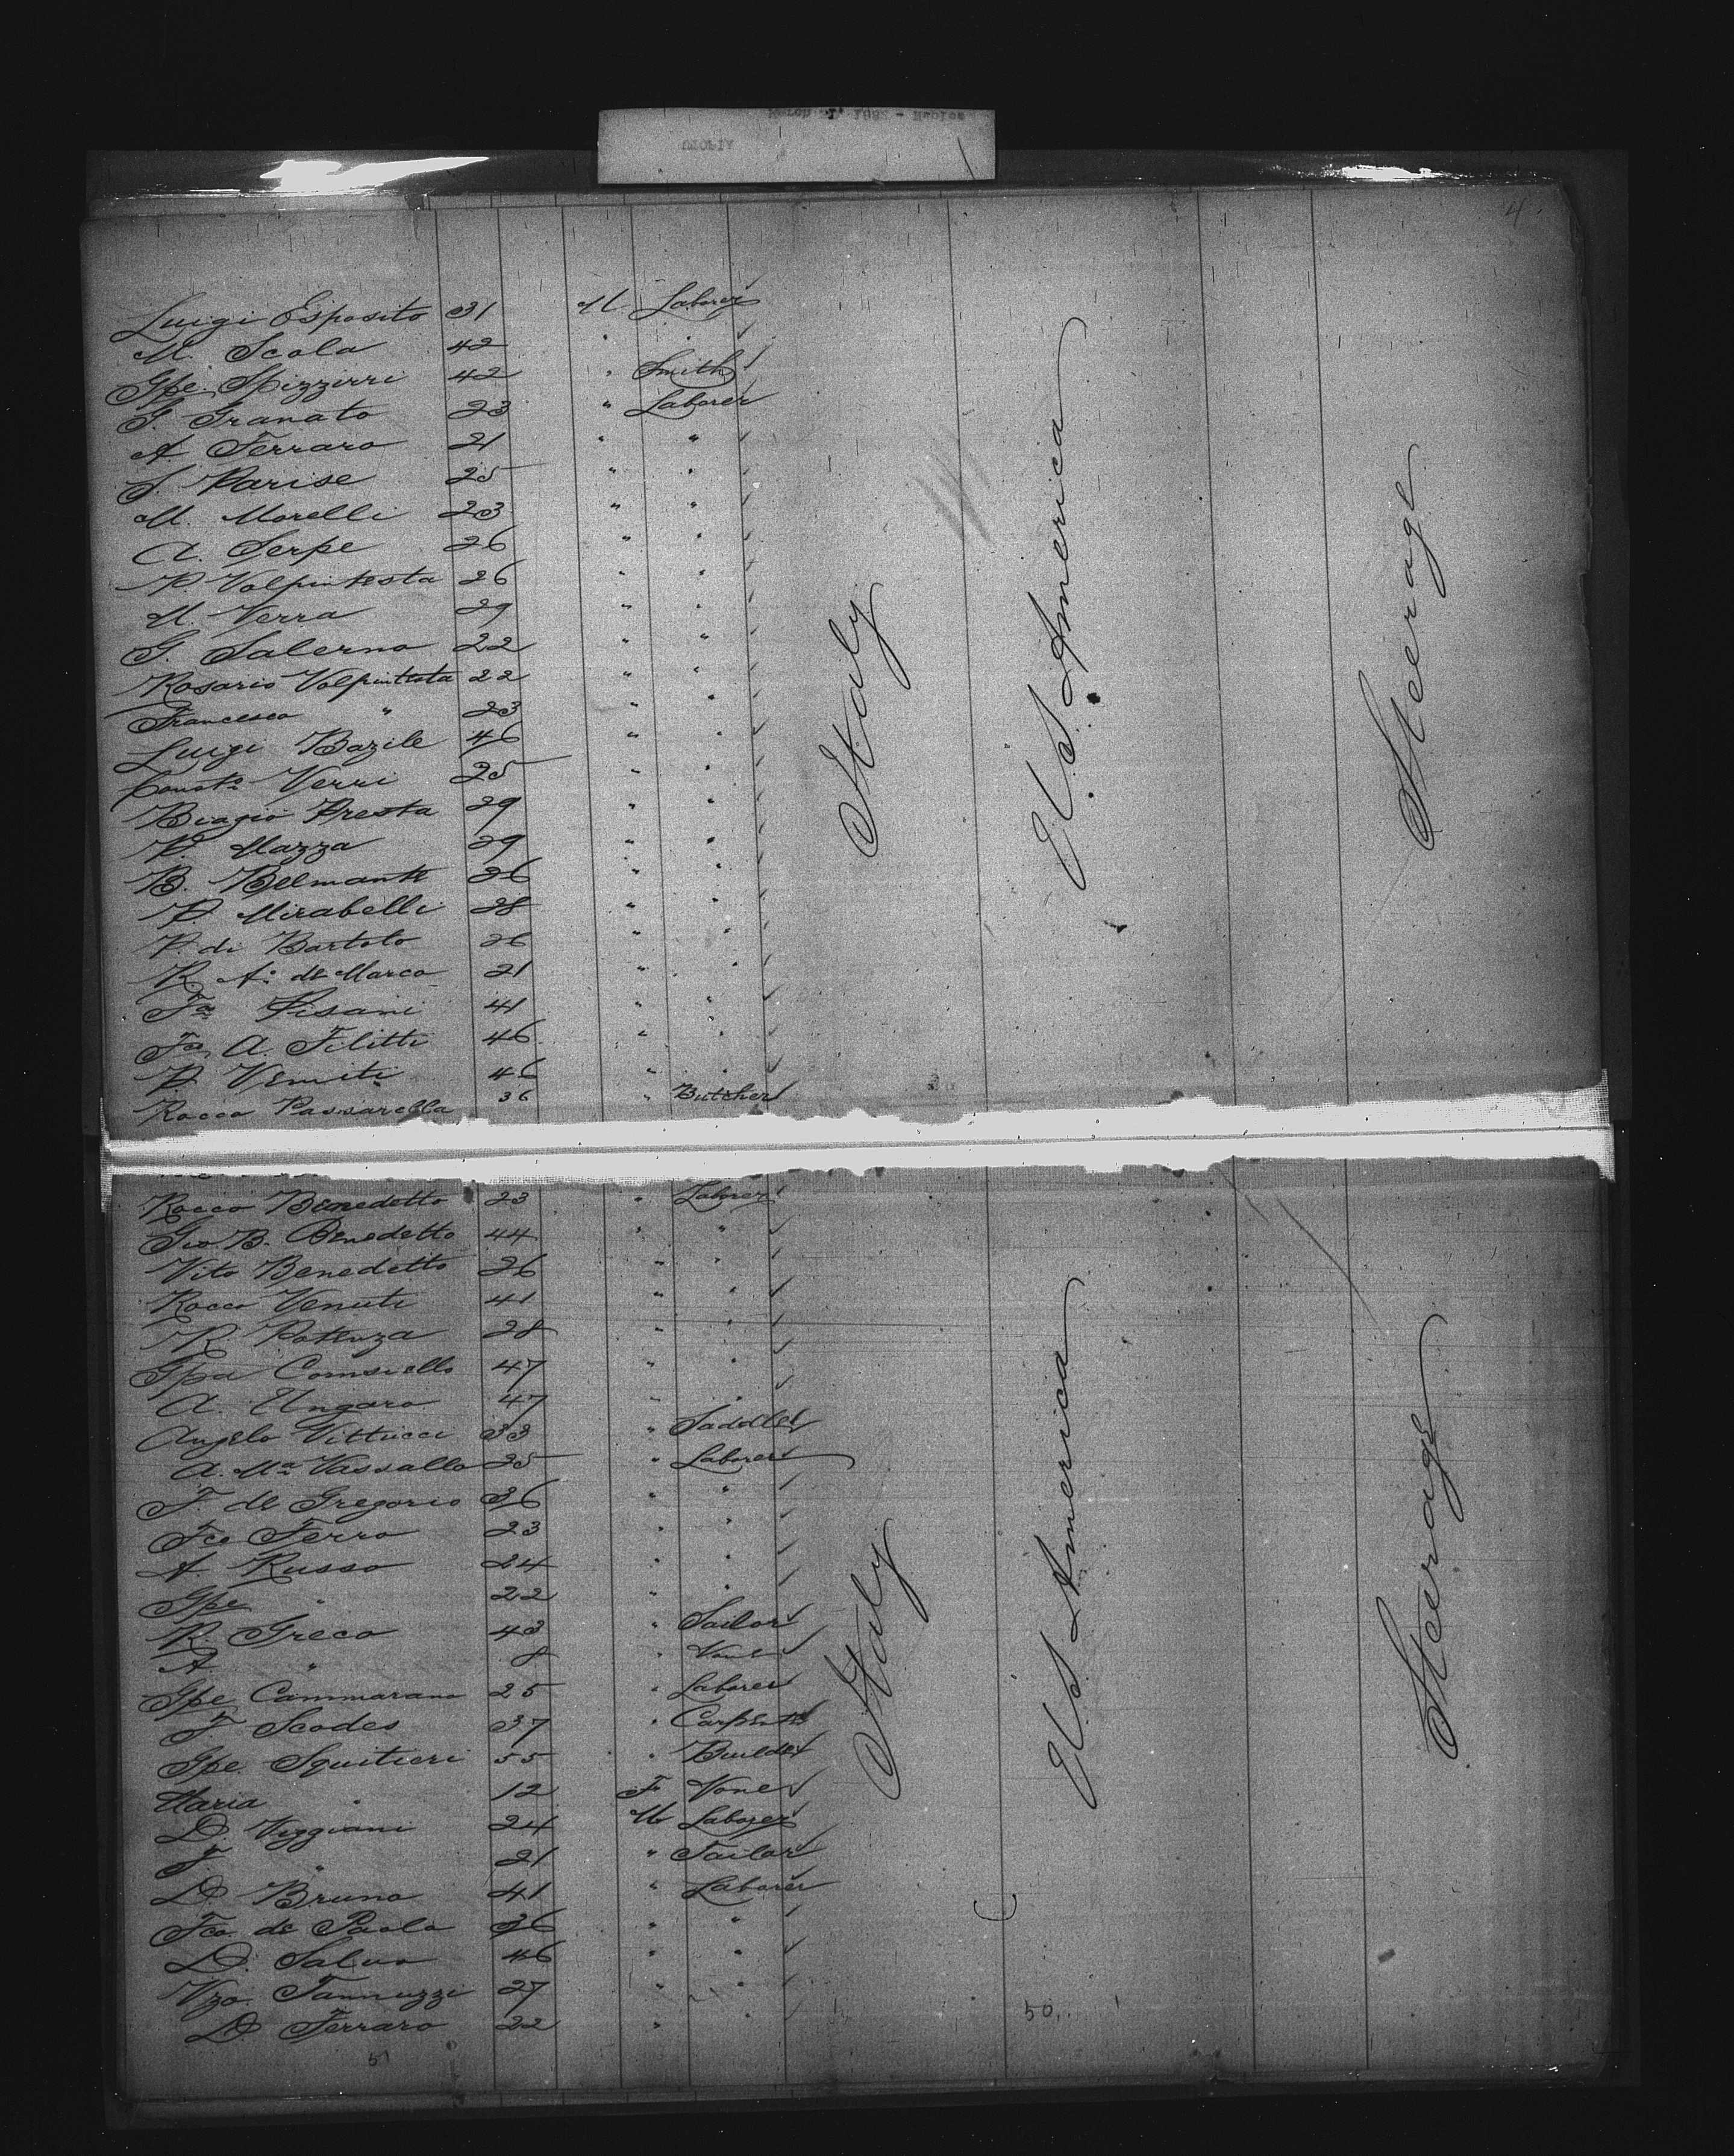 4
Luigi Esposito 31 M Laborer
M. Scola 42 " "
Gpe. Spizzirri 42 " Smith
G. Granato 23 " Laborer
A. Ferraro 21 " "
S. Parise 25 " "
M. Morelli 23 " "
A. Serpe 26 " "
P. Volpintesta 26 " "
M. Verra 29 " "
G. Salerno 22 " "
Rosario Volpintesta 22 " "
Francesco " 23 " "
Luigi Bazile 46 " "
Verri 25 " "
Biagio Presta 29 " "
Mazza 29 " "
B. Belmonte 26 " "
P. Mirabelli 28 " "
P. di Bartolo 26 " "
R. Ao. de Marco 21 " "
Pisani 41 " "
A. Filitti 46 " "
P. Venuti 46 " "
Rocco Passarella 36 " Butcher
Italy
U. S. America
Steerage
Rocco Benedetto 23 " Laborer
Gio. B. Benedetto 44 " "
Vito Benedetto 26 " "
Rocco Venuti 41 " "
R. Potenza 28 " "
Gpa 47 " "
A. Ungaro 47 " "
Angelo Vittucci 33 " Saddler
A. Ma. Vassallo 25 " Laborer
F. de Gregorio 36 " "
Fco Ferro 23 " "
A. Russo 24 " "
Gpe " 22 " "
R. Greco 43 " Sailor
A. " 8 " None
Gpe Cammarano 25 " Laborer
F. Scodes 37 " Carpenter
Gpe Squitieri 55 " Builder
Maria " 12 F None
D. Viggiani 24 M Laborer
F. " 21 " Tailor
D. Bruno 41 " Laborer
Fco. de Paola 36 " "
D. Salvo 46 " "
Vzo. Iannuzzi 27 " "
D. Ferraro 22 " "
Italy
U. S. America
Steerage
50
51